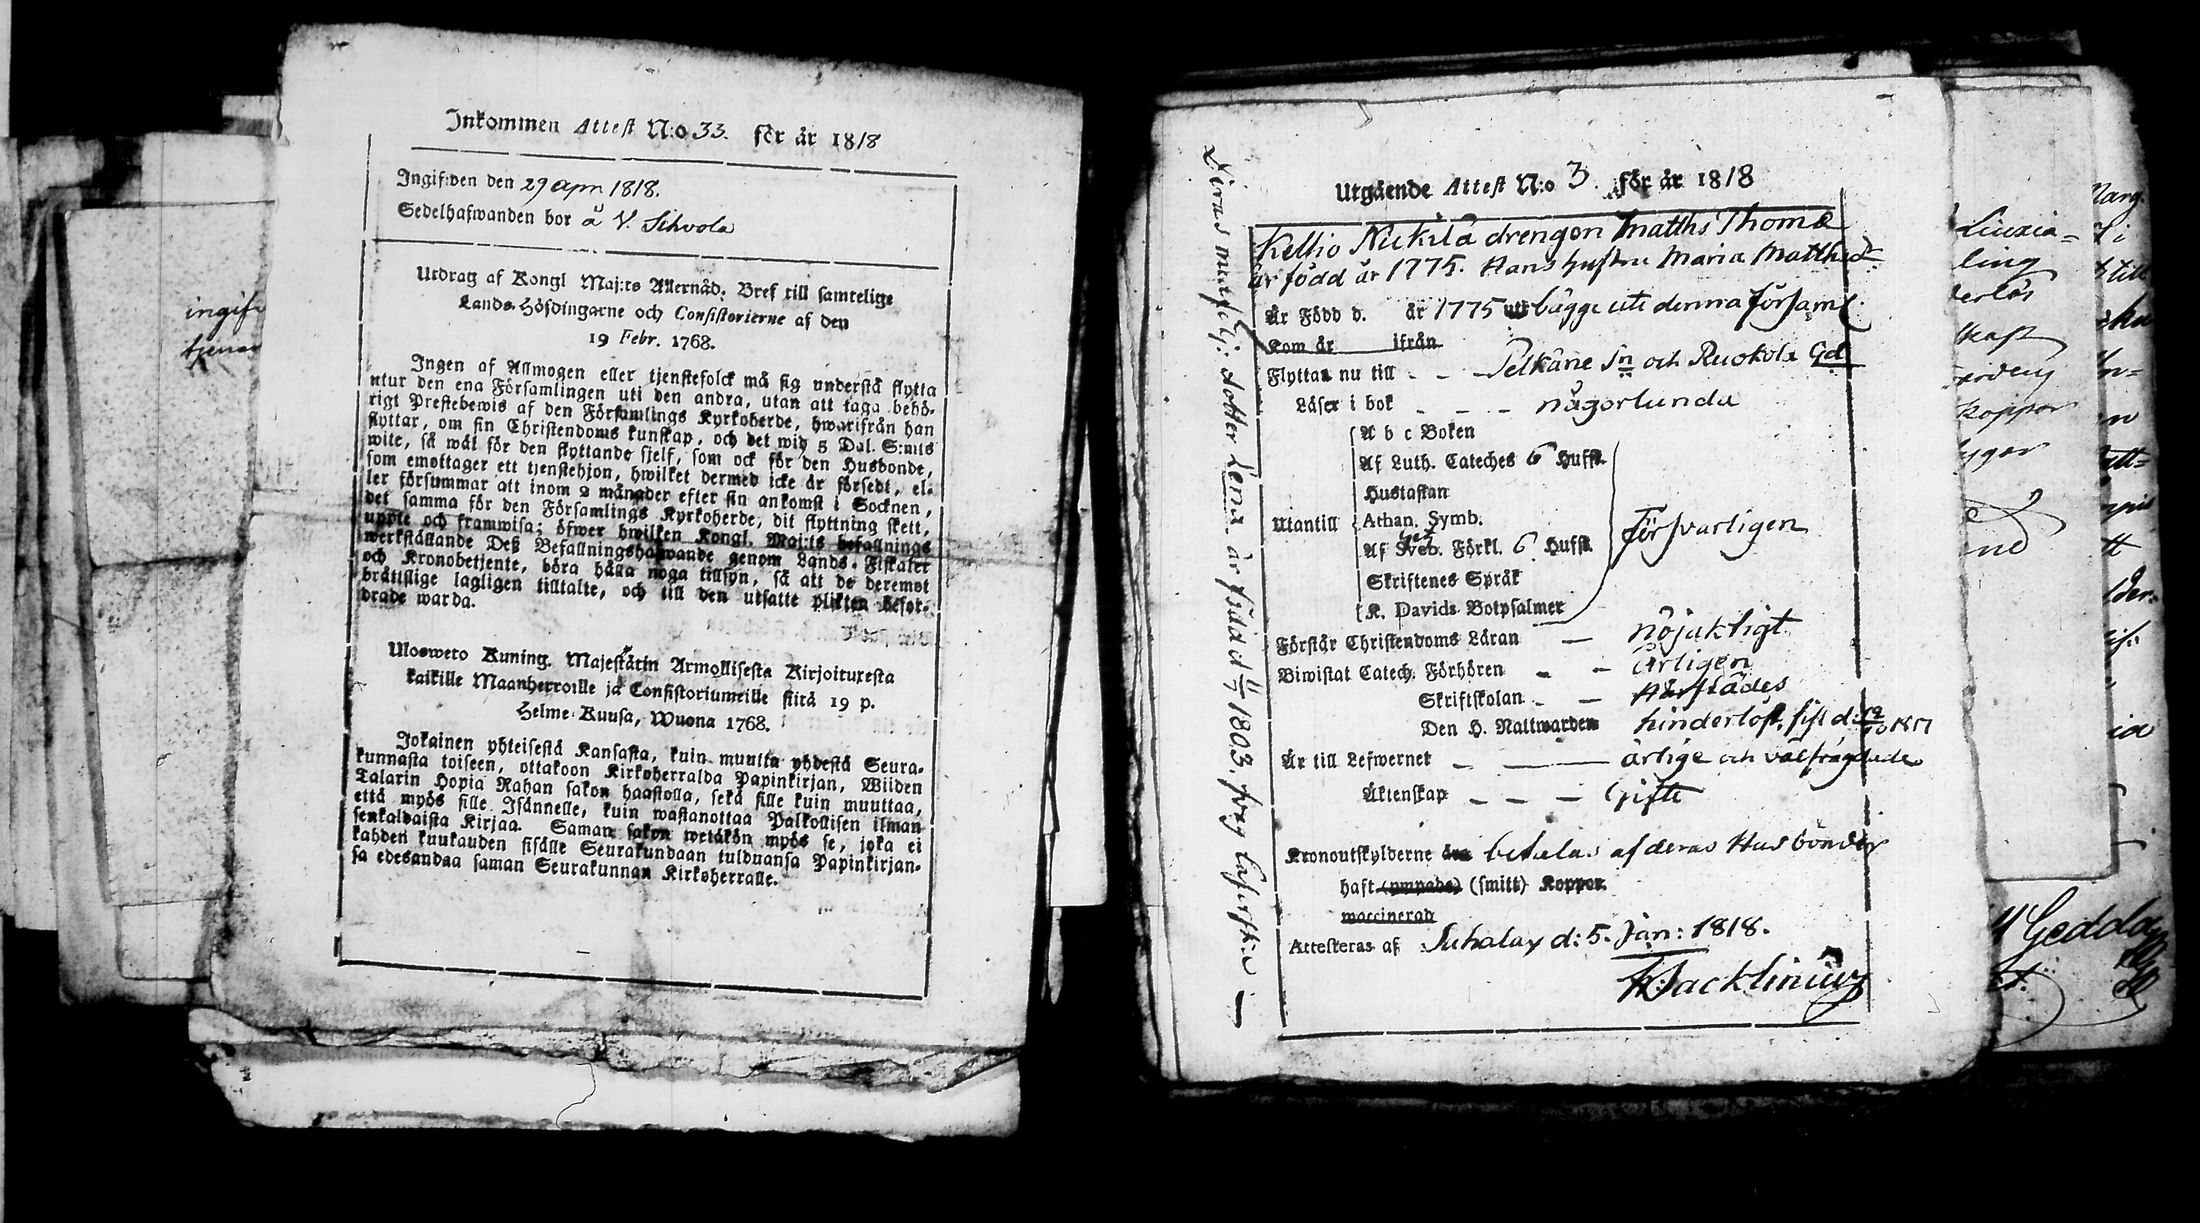 Inkommen Attest N:o 33. för år 1818
Ingifwen den 29 Apr 1818.
Sedelhafwanden bor å V. Sihvola
Utdrag af Kongl Maj:ts Allernåd. Bref till samtelige
Lands-Höfdingarne och Consistorierne af den
19 Febr. 1768.
Ingen af Allmogen eller tjenstefolck må sig understå flytta
utur den ena Församlingen uti den andra, utan att taga behö-
rigt Prestebewis af den Församlings Kyrkoherde, hwarifrån han
flyttar, om sin Christendoms kunskap, och det wid 5 Dal. S:mts
wite, så wäl för den flyttande sjelf, som ock för den Husbonde,
som emottager ett tjenstehjon, hwilket dermed icke är försedt, el-
ler försummar att inom 2 månader efter sin ankomst i Socknen,
det samma för den Församlings Kyrkoherde, dit flyttning skett,
uppte och framwisa; öfwer hwilken Kongl. Maj:ts befallnings
werkställande Deß Befallningshafwande genom Lands-Fiskaler
och Kronobetjente, böra hålla noga tillsyn, så att de deremot
bråttslige lagligen tilltalte, och till den utsatte plikten befor-
drade warda.
Ulosweto Kuning. Majestätin Armollisesta Kirjoituxesta
kaikille Maanherroille ja Consistoriumeille siitä 19 p.
Helme-Kuusa, Wuona 1768.
Jokainen yhteisestä Kansasta, kuin muutta yhdestä Seura-
kunnasta toiseen, ottakoon Kirkoherralda Papinkirjan, Wiiden
Talarin Hopia Rahan sakon haastolla, sekä sille kuin muuttaa,
että myös sille Isännelle, kuin wastanottaa Palkollisen ilman
senkaldaista Kirjaa. Saman sakon wetäkön myös se, joka ei
kahden kuukauden sisälle Seurakundaan tulduansa Papinkirjan-
sa edesandaa saman Seurakunnan Kirkoherralle.
ingif
tjenar
Utgående Attest N:o 3. för år 1818
Kellio Nickilä drengen Matths Thomæ
är född år 1775. Hans hustru Maria Matthsd
Är Född d. år 1775 bägge uti denna församl.
Kom år ifrån
Flyttar nu till - - - Pelkäne Sn och Ruokola Gd
Läser i bok - - - någorlunda
A b c Boken
Af Luth. Cateches 6 Hufst.
Hustaflan
Utantill Athan. Symb.
Af Sveb. Förkl. 6 Hufst.
Försvarligen
Skriftenes Språk
K. Davids Botpsalmer
Förstår Christendoms Läran - nöjaktigt
Biwistat Catech. Förhören - - årligen
Skriftskolan - - Härstädes
Den H. Nattwarden hinderlöst, sist d: 19/10 1817
Är till Lefwernet - - ärlige och välfrägdade
Äktenskap - - - Gifte
Kronoutskylderne äro betalas af deras Husbönder
haft (ympade) (smitt) Koppor.
waccinerad
Attesteras af Sahalax d: 5. Jan: 1818.
Backlinius
Deras dotter Lena är född 11/7 1803, svag
ling
Gedda